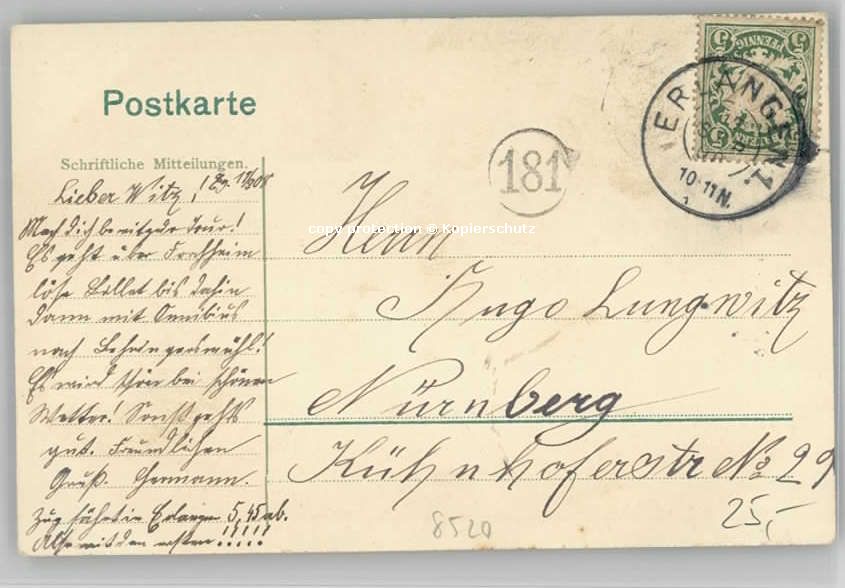 Postkarte
Schriftliche Mitteilungen.
Lieber Witz!
Mach dich bereit zur Tour!
Es geht über Forchheim
löse Billet bis dahin
dann mit Omnibus
nach Behringersmühl!
Es wird schön bei schönem
Wetter! Sonst gehts
gut. Freundlichen
Gruß. Hermann.
Zug fährt in Erlangen 5,45 ab.
Also mit dem ersten!!!!!
181
Herrn
Hugo Lungwitz
Nürnberg
Kühnhoferstr No 29
5 PFENNIG 5
ERLANGEN 1.
10-11 N.
copy protection © Kopierschutz
8520
25,-